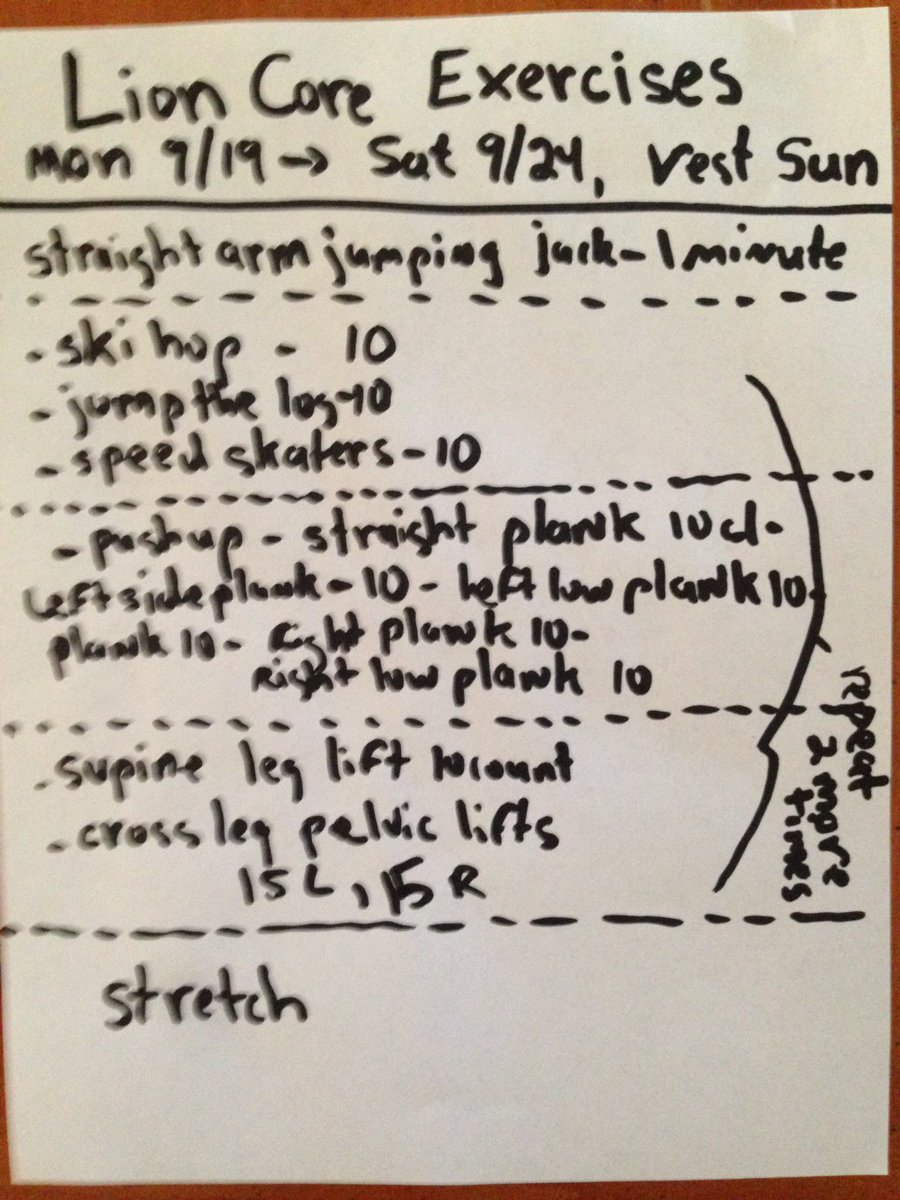 Lion Core Exercises
Mon 9/19 → Sat 9/24, rest Sun
straight arm jumping jack - 1 minute
- ski hop - 10
- jump the log - 10
- speed skaters - 10
- pushup - straight plank 10 ct -
left side plank - 10 - left low plank 10 -
plank 10 - right plank 10 -
right low plank 10
- supine leg lift 10 count
- cross leg pelvic lifts
15 L, 15 R
repeat
2 more
times
stretch